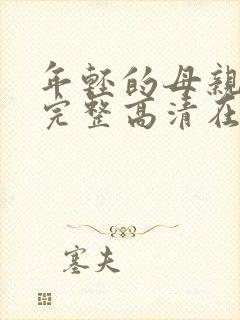 年轻的母亲
完整高清在
塞夫